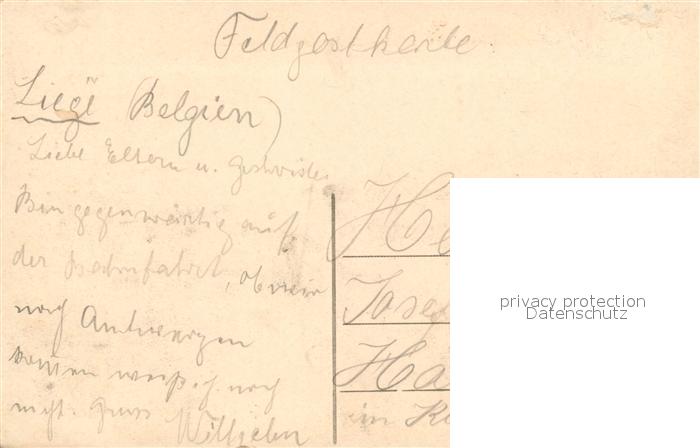 Feldpostkarte.
Liegë (Belgien)
Liebe Eltern u. Geschwister
Bin gegenwärtig auf
der Bahnfahrt, ob wir
nach Antwerpen
kommen weiß ich noch
nicht. Gruss
Wilhelm
He
Josef
Ha
in
privacy protection
Datenschutz